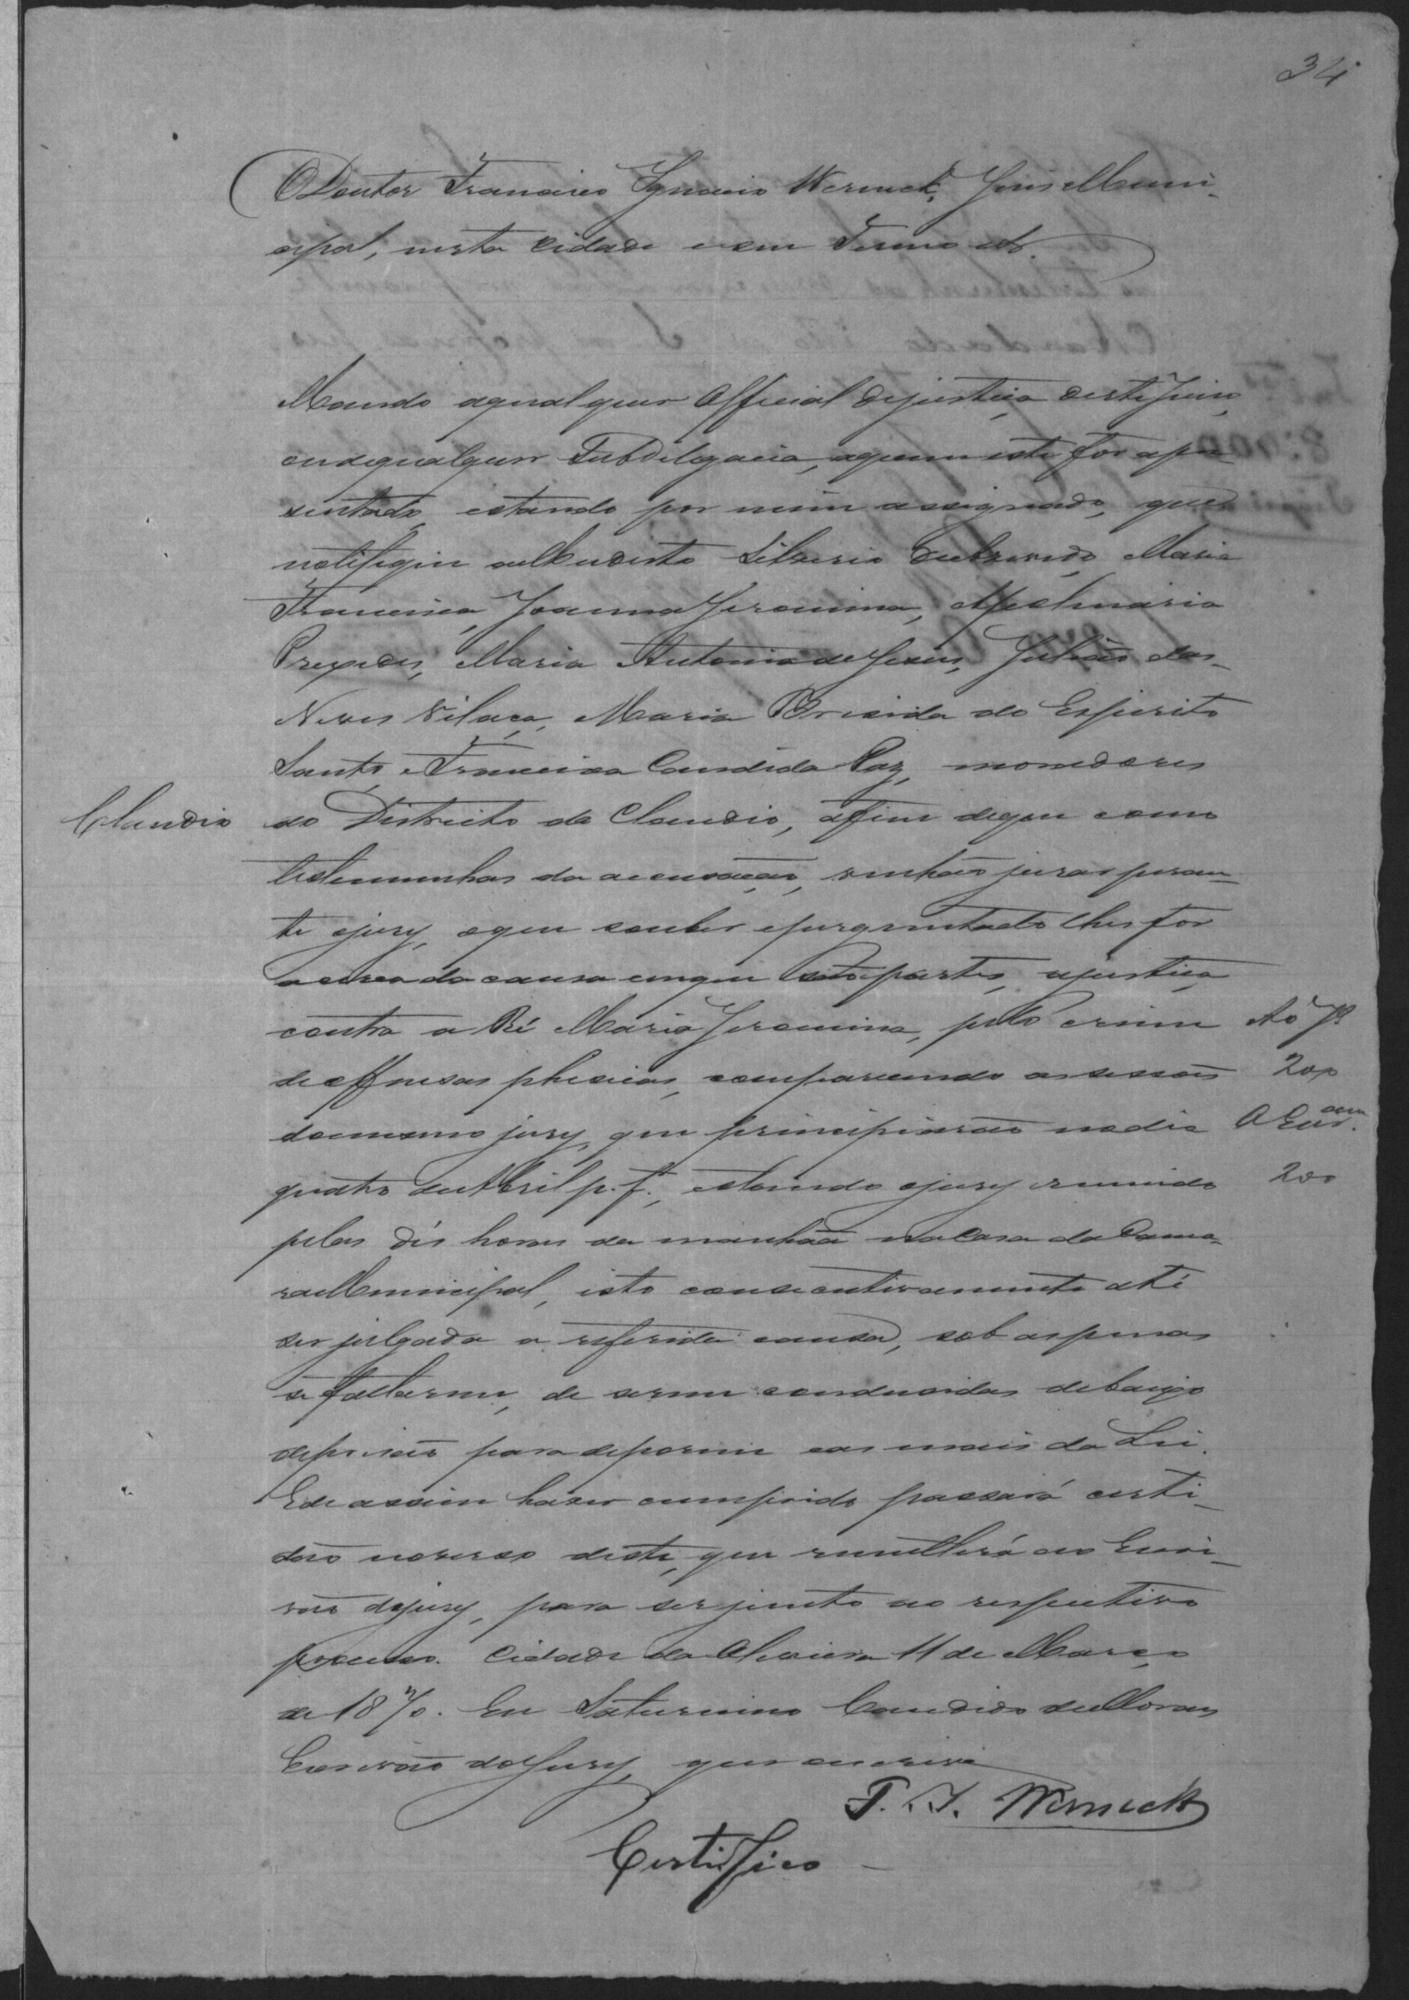 34
O Doutor Francisco Ignacio Werneck, Juis Muni-
cipal, nesta Cidade e seu Termo etc.
Mando aqualquer Official dejustiça destejuiso,
ou dequalquer Subdelegacia, aquem este for apre
sentado, estando por mim assignado, que
notifiquem a Modesto Liberio Maria
Francisca, Joanna Jeronima, Apolinaria
Prexedes, Maria Antonia de Jesus, Julião das
Neves Vilaça, Maria Brisida do Espirito
Santo, e Francisca Candida Vaz, moradores
Claudio
no Districto do Claudio, afim deque como
testemunhas da accusação, venhão jurar peran-
te ojury, oque souber eperguntado lhes for
acerca da causa emque são partes, ajustiça
contra a Ré Maria Jeronima, pelo crime
Ao Jz.
deoffensas phisicas, comparecendo as sessoẽs
200
domesmo jury, que principiarão nodia
Ao Escram.
quatro de Abril p. f., estando ojury reunido
200
pelas dés horas da manhaã na Casa da Cama-
ra Municipal, isto consecutivamente até
ser julgada a referida causa, sob aspenas
se faltarem, de serem condusidas debaixo
deprisão para deporem eas mais da Lei.
Ede assim haver cumprido passará certi-
dão noverso deste, que remetterá ao Escri-
vão dojury, para serjunto ao respectivo
processo. Cidade da Oliveira 11 de Março
de 1870. Eu Saturnino Candido de Moraes
Escrivão do Jury, que escrivi
F. I. Werneck
Certifico